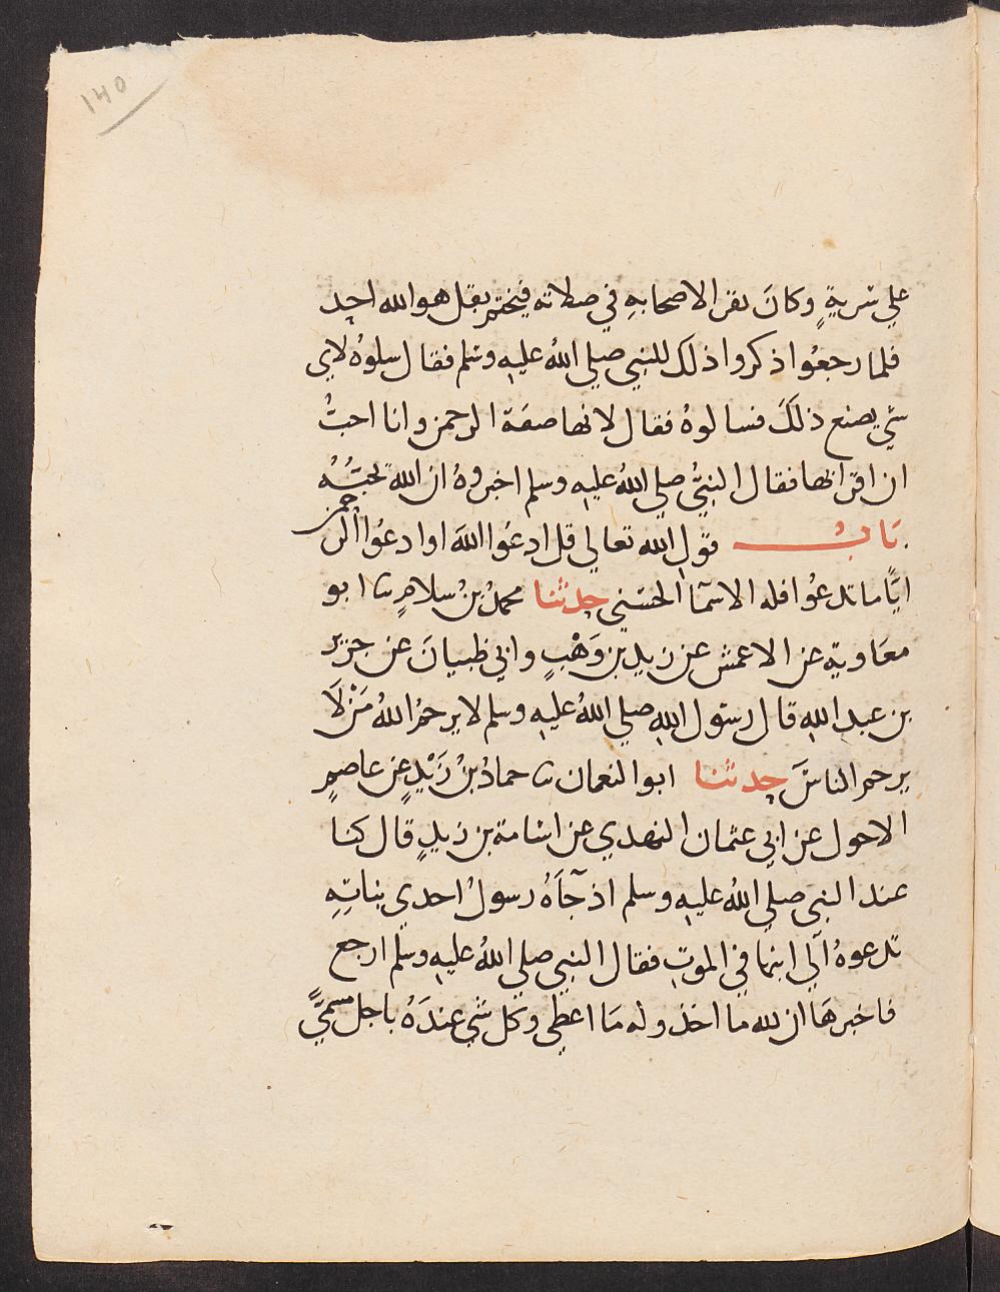 ١٤٥
علي سَريةٍ وكانَ يقرا لاصحابهِ في صلاته فيختم بقل هو الله احد
فلما رجعُوا ذكروا ذلكَ للنبي صلي اللهُ عليه وسَلم فقال سلوهُ لاي
شي يصنع ذلكَ فسالوهُ فقال لانها صفة الرحمن وانا احبُّ
ان اقرا بها فقال النبيُّ صلي اللهُ عليه وسلم اخبروهُ ان الله يحبُّهُ
بَابُ قول الله تعالي قل ادعُوا اللهَ او ادعُوا الرحمن
ايًّا ما تدعُوا فله الاسمآ الحسَني حدثنا محمدُ بنُ سلامٍ ثنا ابو
معَاوية عن الاعمش عن زيد بن وَهْبٍ وابي ظبيانَ عن جرير
بن عبد اللهِ قال رسَول اللهِ صلي اللهُ عليهِ وسلم لا يرحمُ اللهُ مَنْ لَا
يرحم الناسَ حدثنا ابو النعمان ثنا حمادُ بنُ زَيْدٍ عن عاصمٍ
الاحول عن ابي عثمان النهدي عن اسَامة بن زيدٍ قال كنا
عند النبي صلي اللهُ عليه وسلم اذ جَآءَهُ رسولُ احدي بناتِهِ
تدعوهُ الي ابنها في الموتِ فقال النبي صلي اللهُ عليهِ وسَلم ارجع
فاخبرهَا ان لله ما اخذ وله مَا اعطي وكل شي عندَهُ باجل مسميًّ